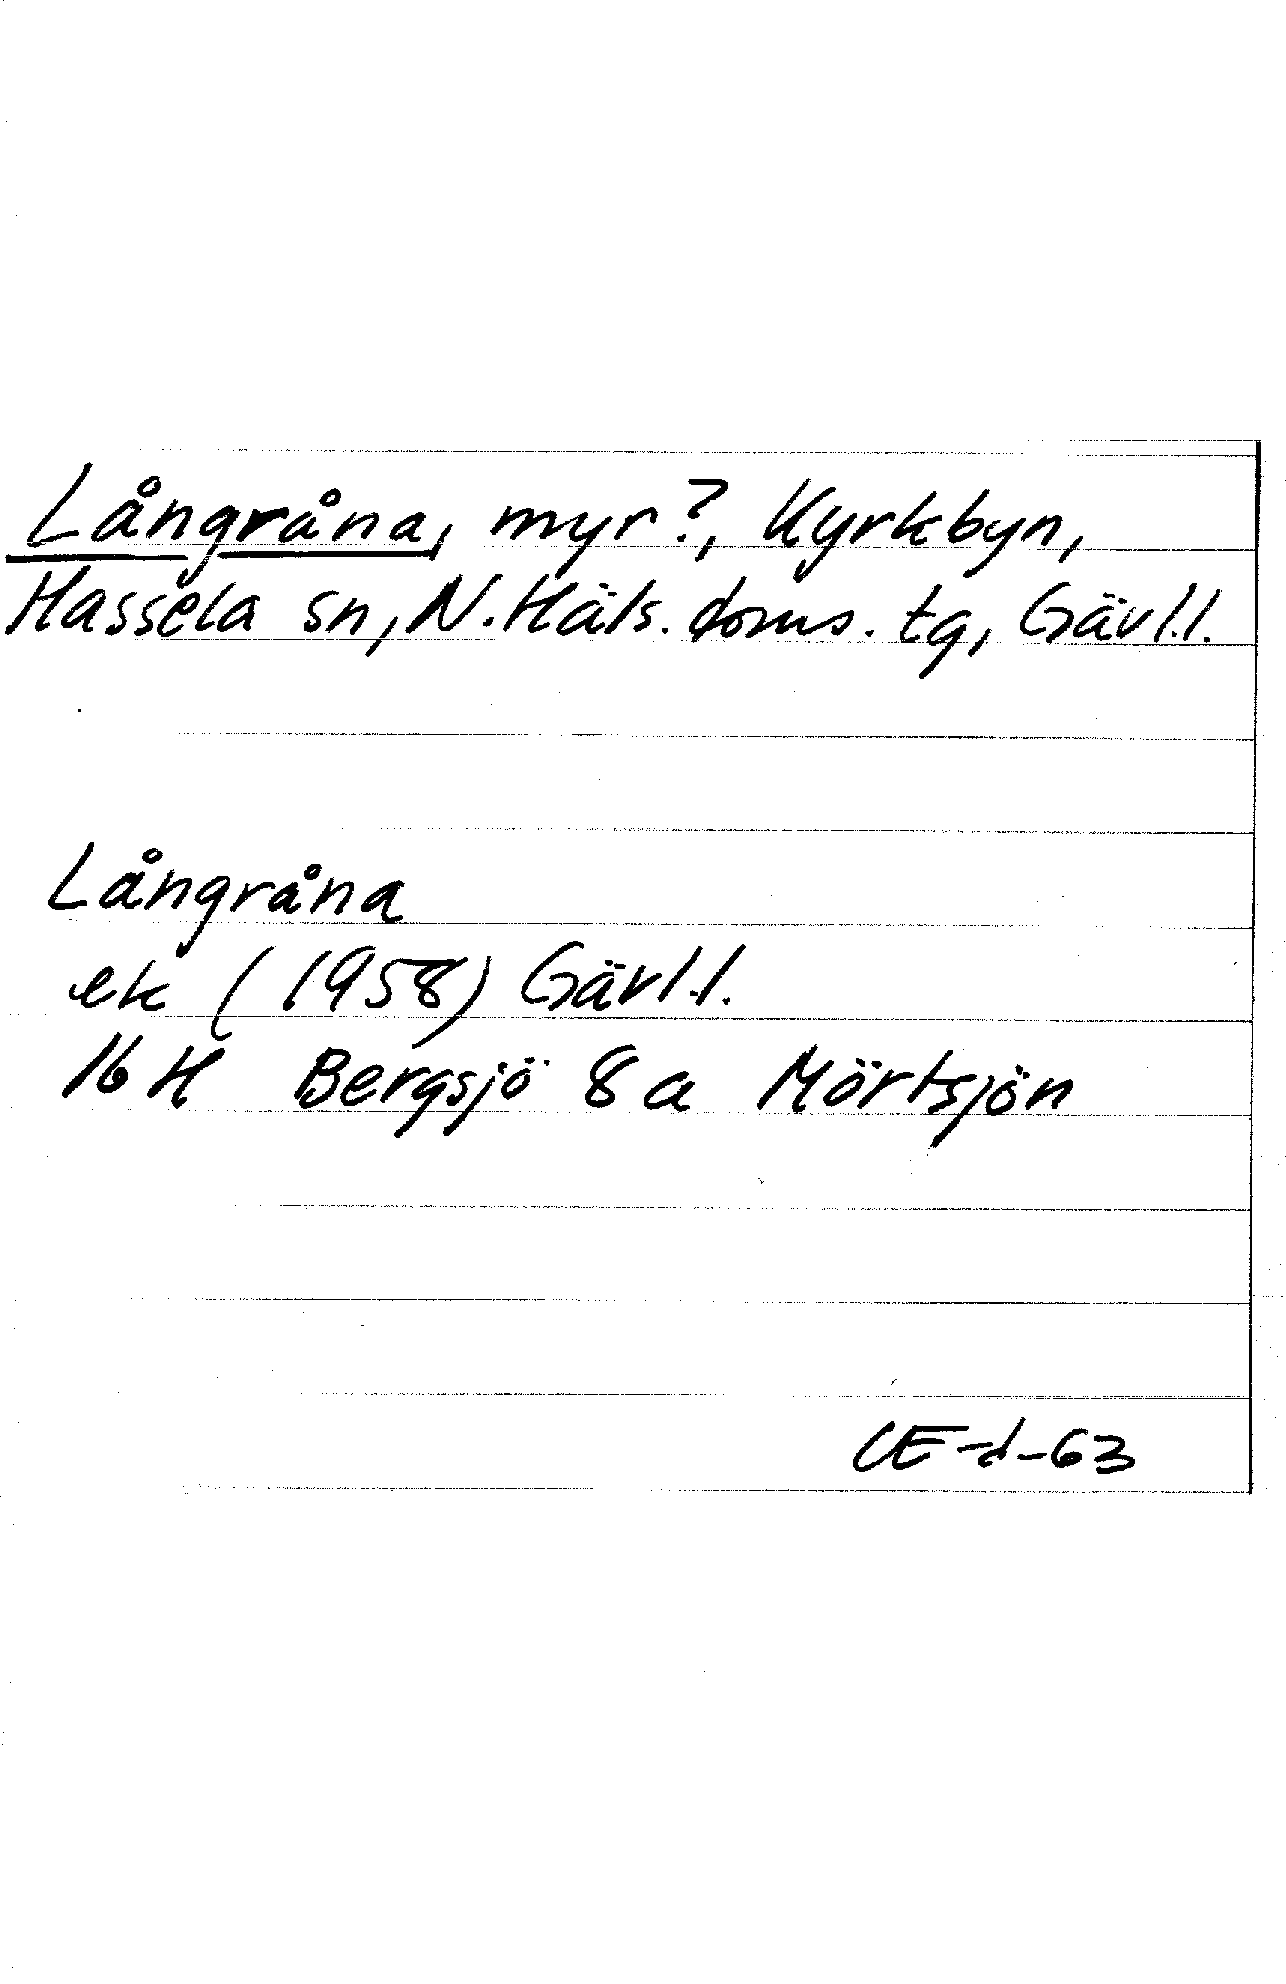 Långråna, myr?, Kyrkbyn,
Hassela sn, N. Häls. doms. tg, Gävl.l.
Långråna
ek (1958) Gävl.l.
16 H Bergsjö 8 a Mörtsjön
CE-d-63